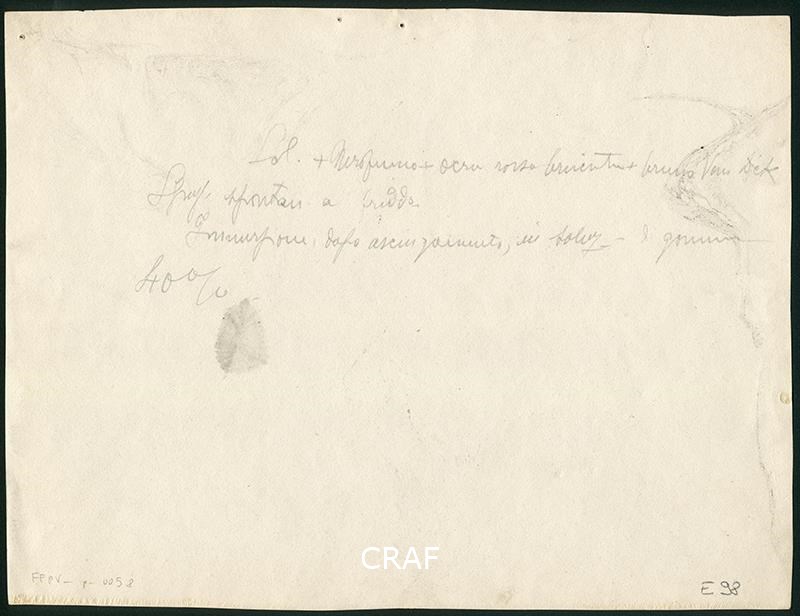 Col. + Nerofumo + ocra rossa bruciata + bruno Van Dik
spontan a freddo.
Immersione, dopo asciugamento, in soluz - d gomma
40 %
CRAF
E 98